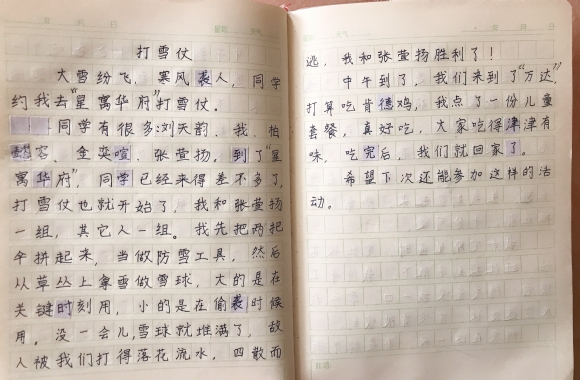 打雪仗
大雪纷飞，寒风袭人，同学
约我去“星寓华府”打雪仗。
同学有很多:刘天韵、我、柏
懿容、金奕喧、张萱扬，到了“星
寓华府”，同学已经来得差不多了，
打雪仗也就开始了，我和张萱扬
一组，其它人一组。我先把两把
伞拼起来，当做防雪工具，然后
从草丛上拿雪做雪球，大的是在
关键时刻用，小的是在偷袭时候
用。没一会儿，雪球就堆满了，敌
人被我们打得落花流水，四散而
逃，我和张萱扬胜利了！
中午到了，我们来到了“万达”
打算吃肯德鸡，我点了一份儿童
套餐，真好吃，大家吃得津津有
味，吃完后，我们就回家了。
希望下次还能参加这样的活
动。